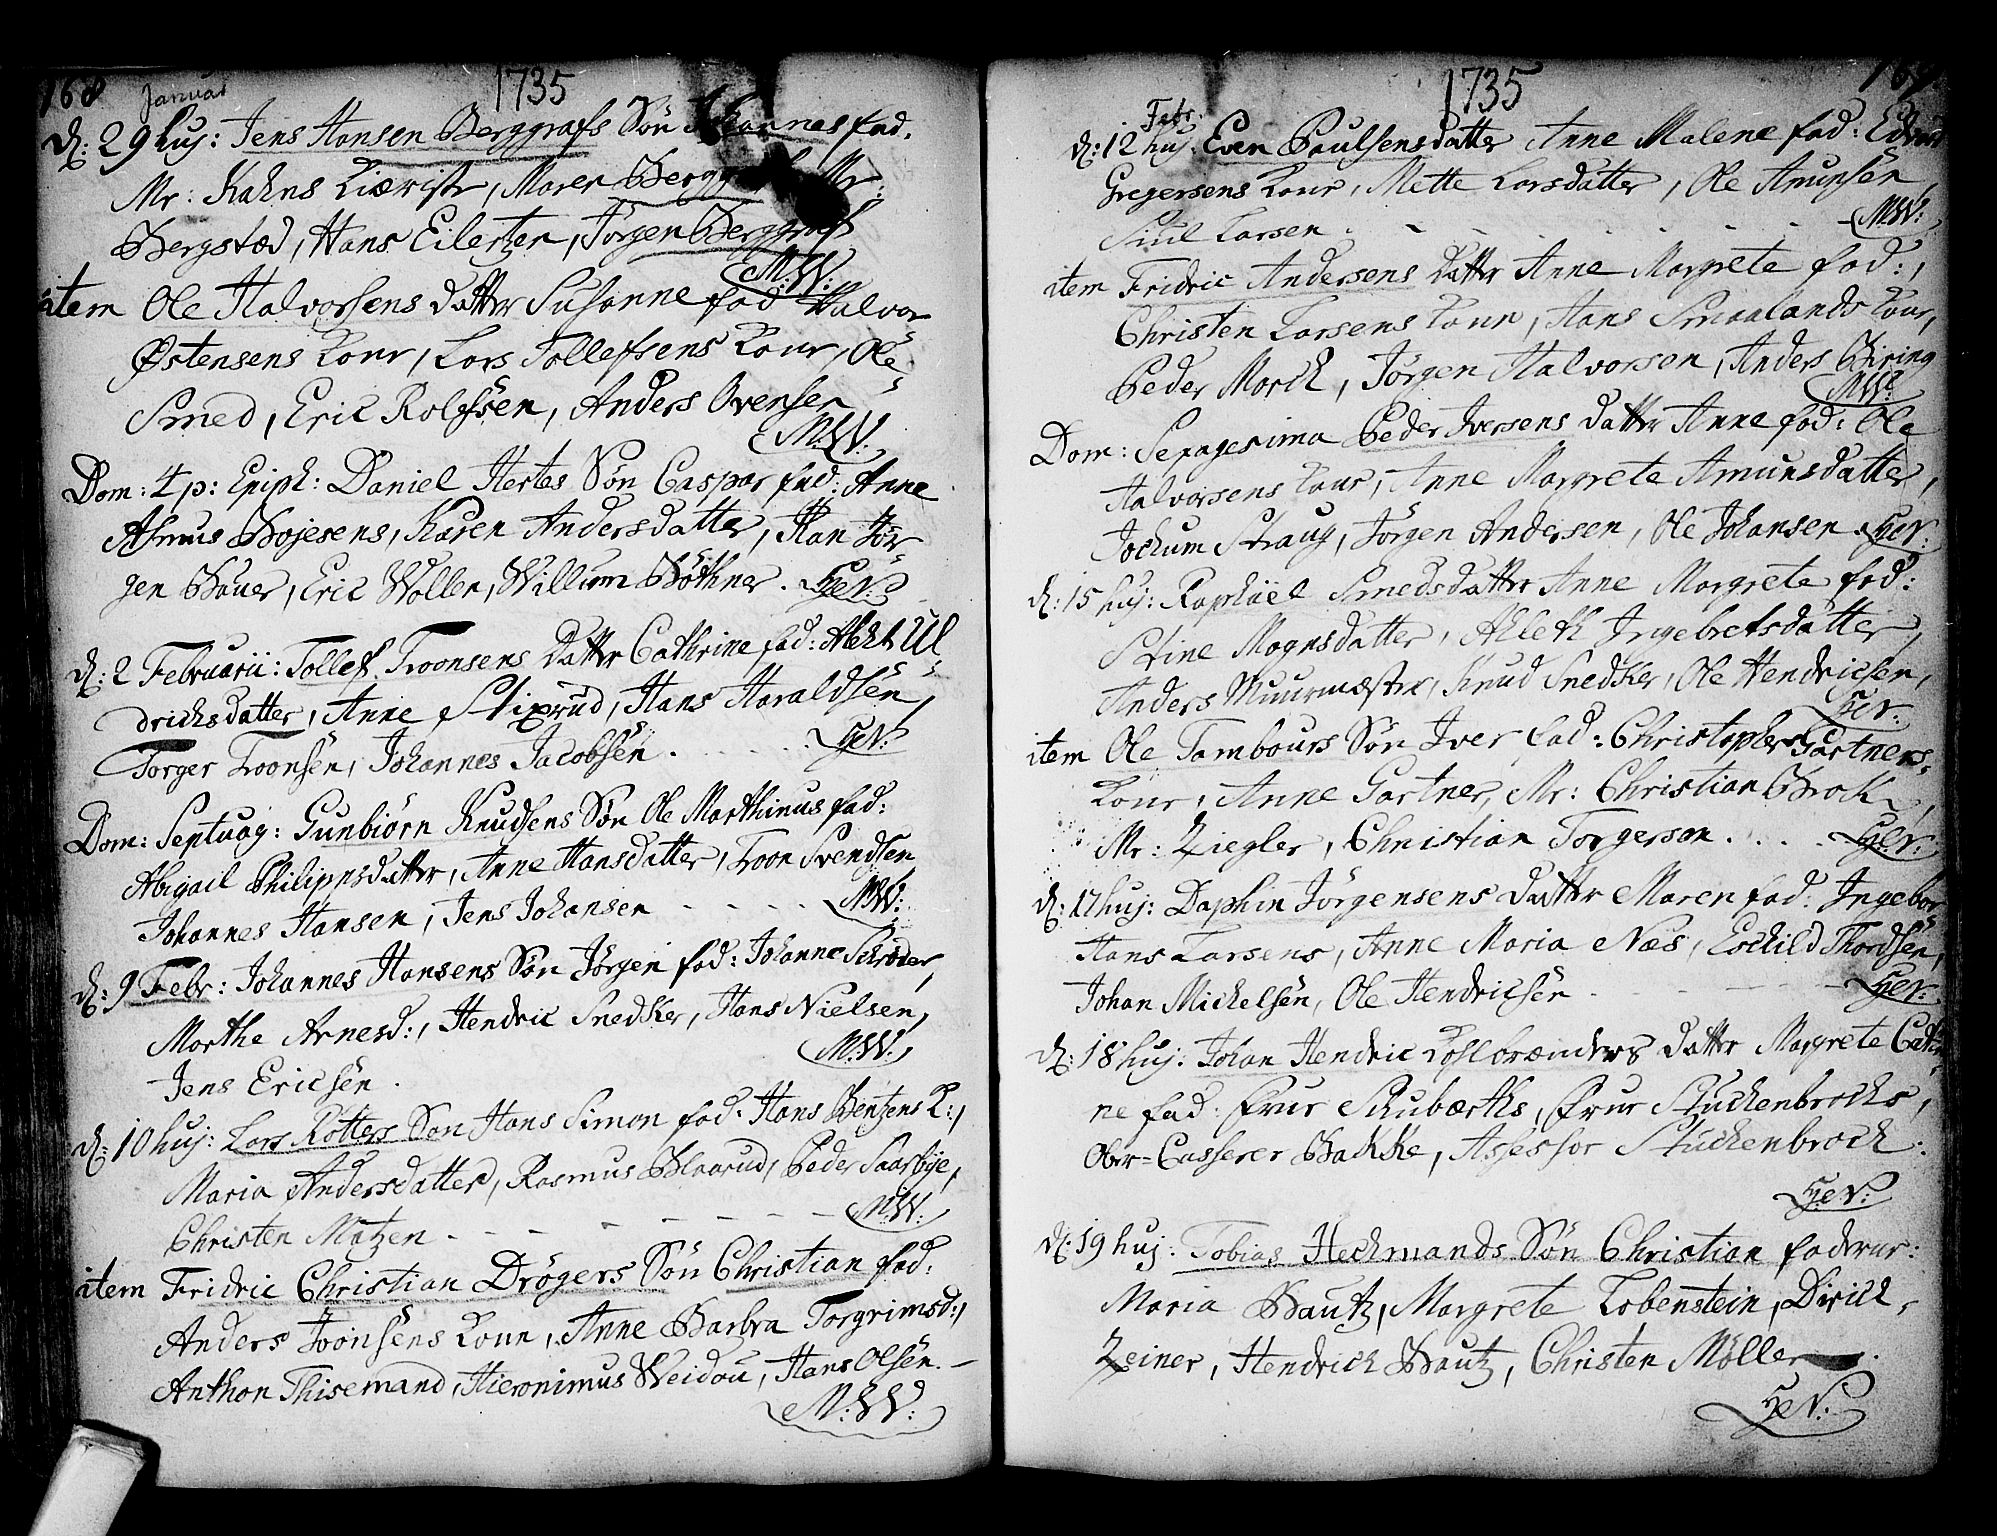 168 Januar 1735
d: 29 huj: Jens Hansen Berggrafs Sön Johannes fad.
Mr: Kahns Kiæriste, Maren Mr:
Bergstæd, Hans Eilertzen, Jörgen Berggraf
M.W.:
item Ole Halvorsens datter Susanne fad Halvor
Østensens Kone, Lars Tollefsens Kone, Ole
Smed, Eric Rolfsen, Anders Ovensen
M.W.
Dom: 4 p: Epiph: Daniel Hertes Sön Caspar fad: Anne
Asmus Bojesens, Karen Andersdatter, Han Jör-
gen Bauer, Eric Woller, Willum Böthner. HeN:
d: 2 Februarii: Tollef Troonsens datter Cathrine fad: Ul-
drichsdatter, Anne Stixrud, Hans Haraldsen,
Torger Troonsen, Johannes Jacobsen. HeN:
Dom: Septuag: Gunbiörn Knudsens Sön Ole Marthinus fad:
Abigail Philipusdatter, Anne Hansdatter, Troon Svendsen
Johannes Hansen, Jens Johansen M.W:
d: 9 Febr: Johannes Hansens Sön Jörgen fad: Johanne Schrøder,
Marthe Arnesd:, Hendric Snedker, Hans Nielsen,
M:W.:
Jens Ericsen.
d: 10 huj: Lars Rötters Sön Hans Simon fad. Hans Bentzens K:,
Maria Andersdatter, Rasmus Blaarud, Peder Saarbye,
M.W.:
Christen Matzen
item Fridric Christian Drögers Sön Christian fad:
Anders Joonsens Kone, Anne Barbra Torgrimsd:,
Anthon Thisemand, Hieronimus Weidou, Hans Olsen.
M:W:
1735 169.
Febr.
d: 12 huj. Even Paulsensdatter Anne Malene fad:
Gregersens Kone, Mette Larsdatter, Ole Amunsen,
Siul Larsen. M.W:
item Fridric Andersens datter Anne Margrete fad:,
Christen Larsens Kone, Hans Smaalands Kone,
Peder Morck, Jörgen Halvorsen, Anders Biring
M.W:
Dom: Sexagesima Peder Iversens datter Anne fad: Ole
Halvorsens Kone, Anne Margrete Amunsdatter,
Jochum Straug, Jörgen Andersen, Ole Johansen. HeN:
d: 15 huj: Raphael Smedsdatter Anne Margrete fad:
Stine Magnsdatter, Ahleth Ingebretsdatter,
Anders Muurmæster, Knud Snedker, Ole Hendricsen,
HeN:
item Ole Tambours Sön Iver fad: Christopher Gartners
Kone, Anne Gartner, Mr: Christian Brok,
Mr: Ziegler, Christian Torgersen. HeN:
d: 17 huj: Daphin Jörgensens datter Maren fad: Ingebor
Hans Larsens, Anne Maria Næs, Eschild Thordsen,
Johan Mickelsen, Ole Hendricsen HeN:
d: 18 huj: Johan Hendric Kohlbrænders datter Margrete Cathri-
ne fad: Frue Schubærths, Frue Stuckenbrocks,
Ober-Casserer Bakke, Assessor Stuckenbrock:
HeN:
d: 19 huj: Tobias Heckmands Sön Christian faderne:
Maria Bautz, Margrete Lobenstein, Dirich,
Zeiner, Hendrich Bautz, Christen Möller.
HeN: